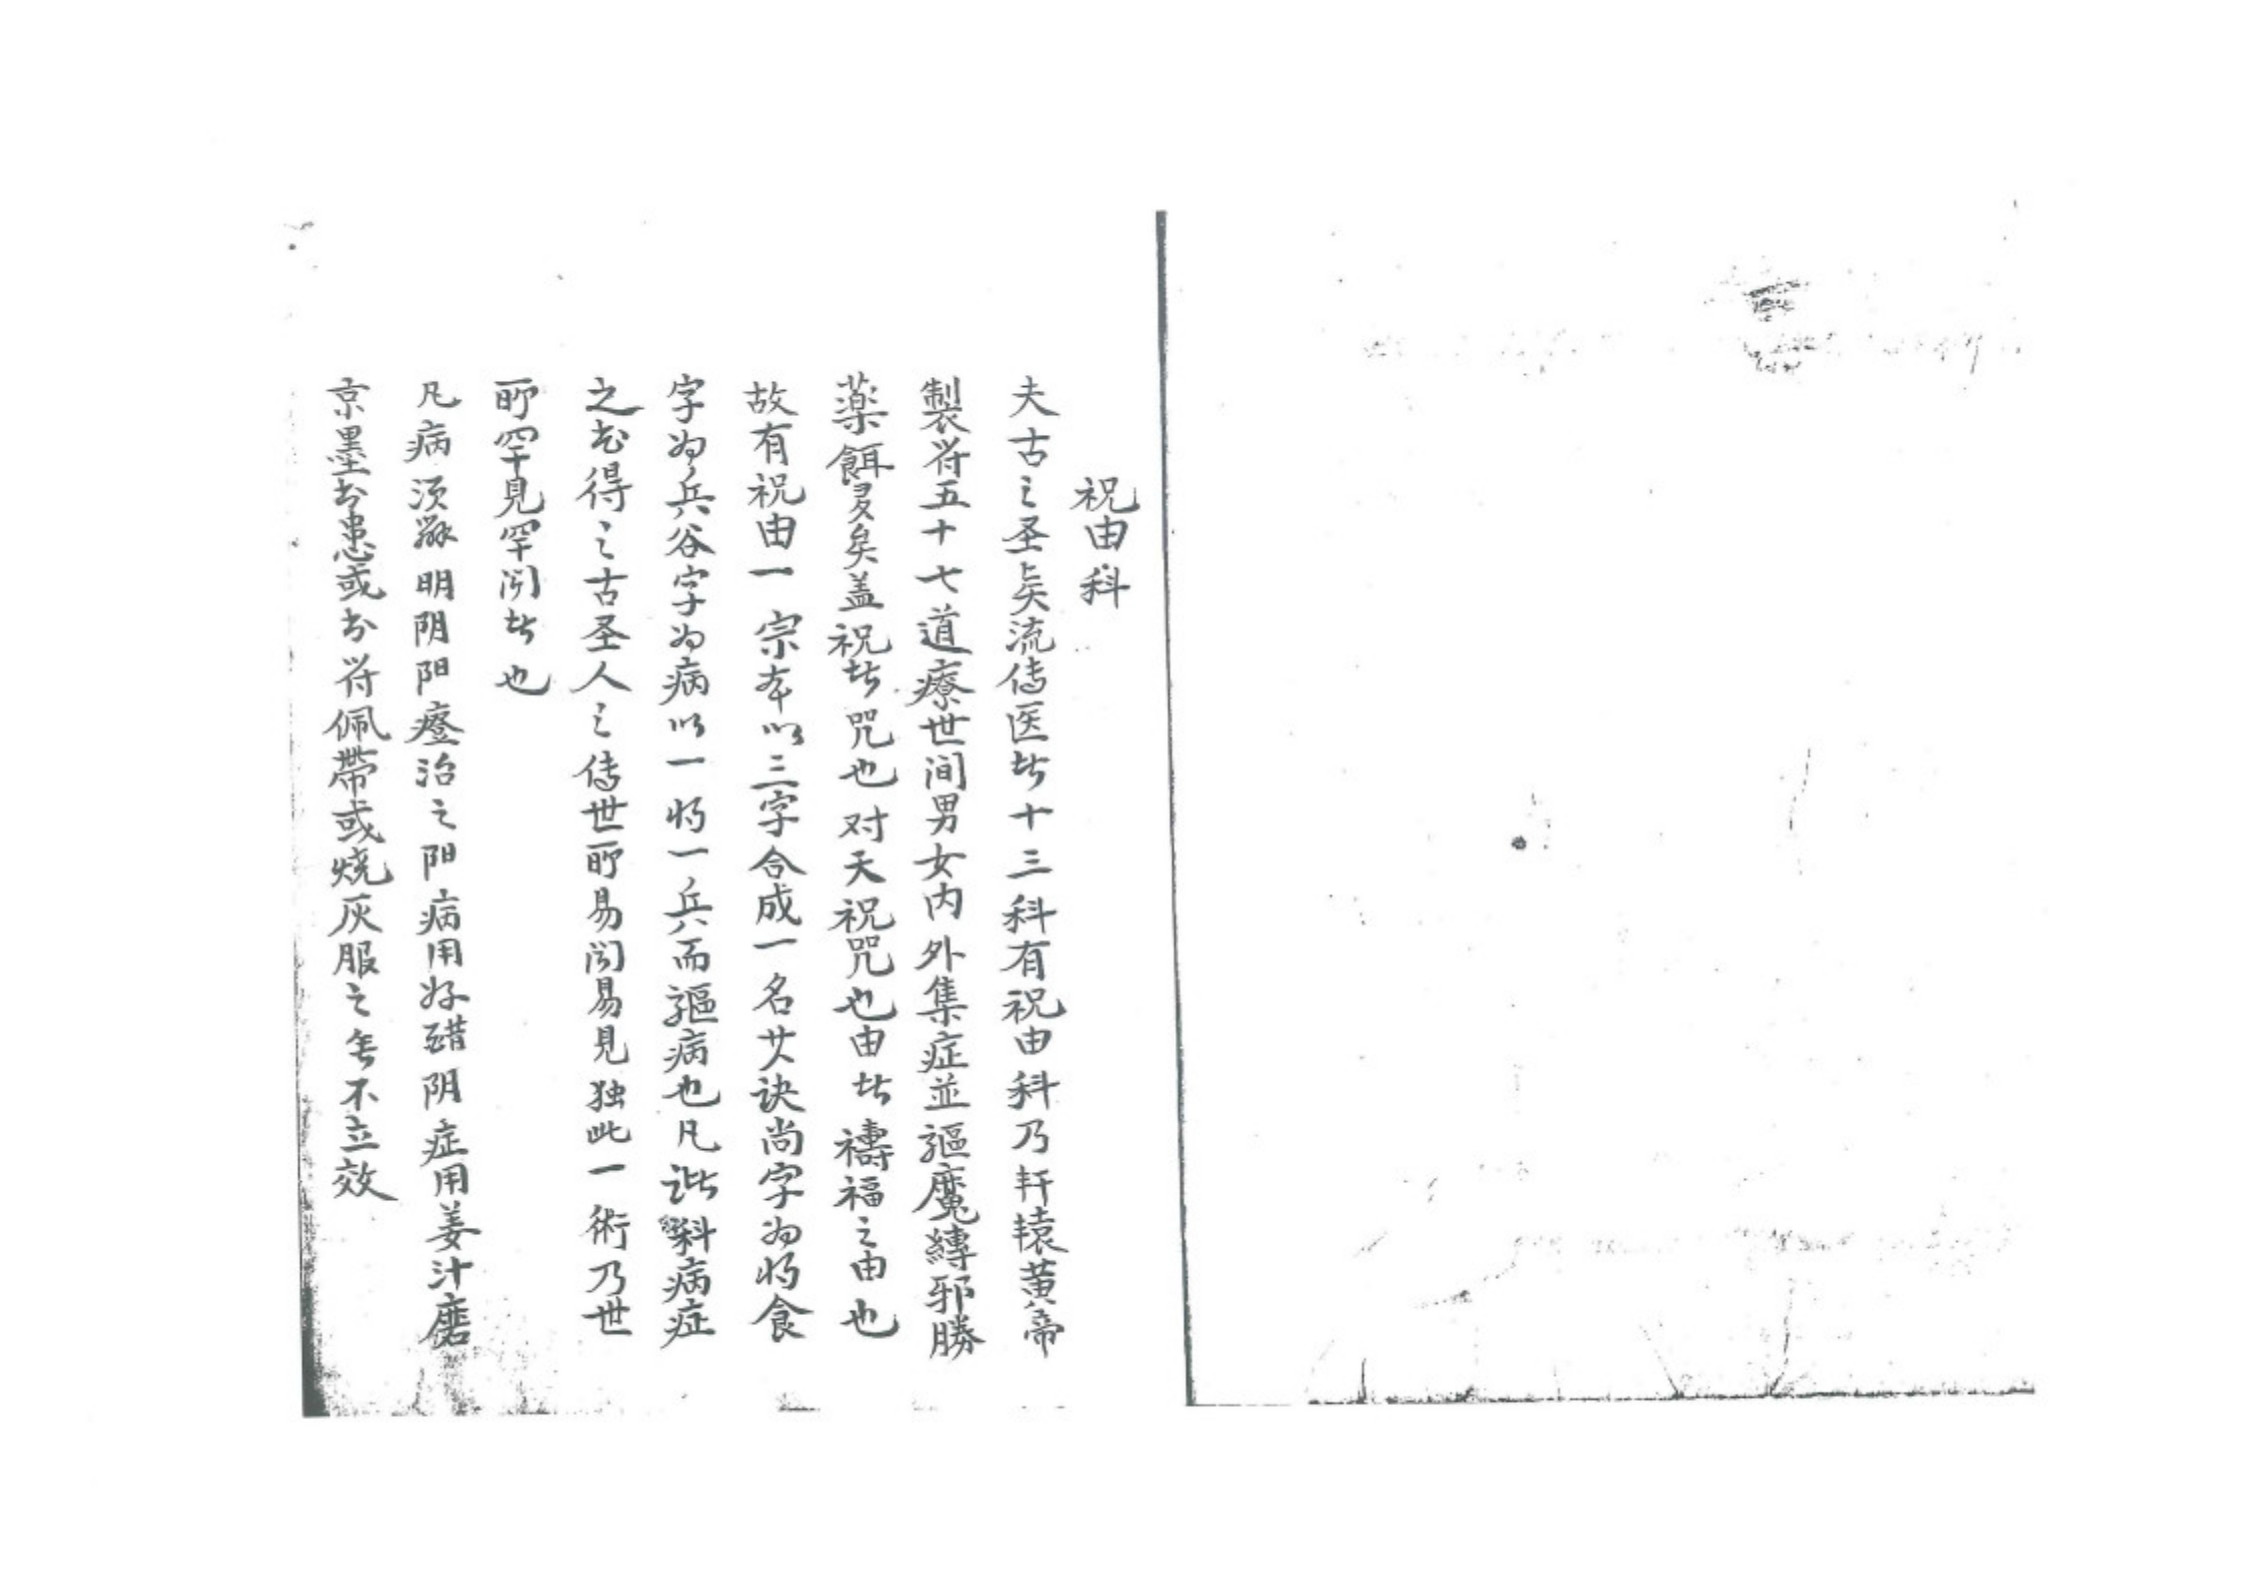 祝由科
夫古之圣矣流传医者十三科有祝由科乃轩辕黄帝
製符五十七道療世间男女内外集症並謳魔縛邪勝
薬餌多矣盖祝者咒也对天祝咒也由者禱福之由也
故有祝由一宗本以三字合成一名其诀尚字为将食
字为兵谷字为病以一将一兵而謳病也凡诸科病症
之书得之古圣人之传世所易闻易見独此一術乃世
所罕見罕闻者也
凡病须辨明阴阳瘞治之阳病用好醋阴症用姜汁磨
京墨书患或书符佩帶或燒灰服之無不立效